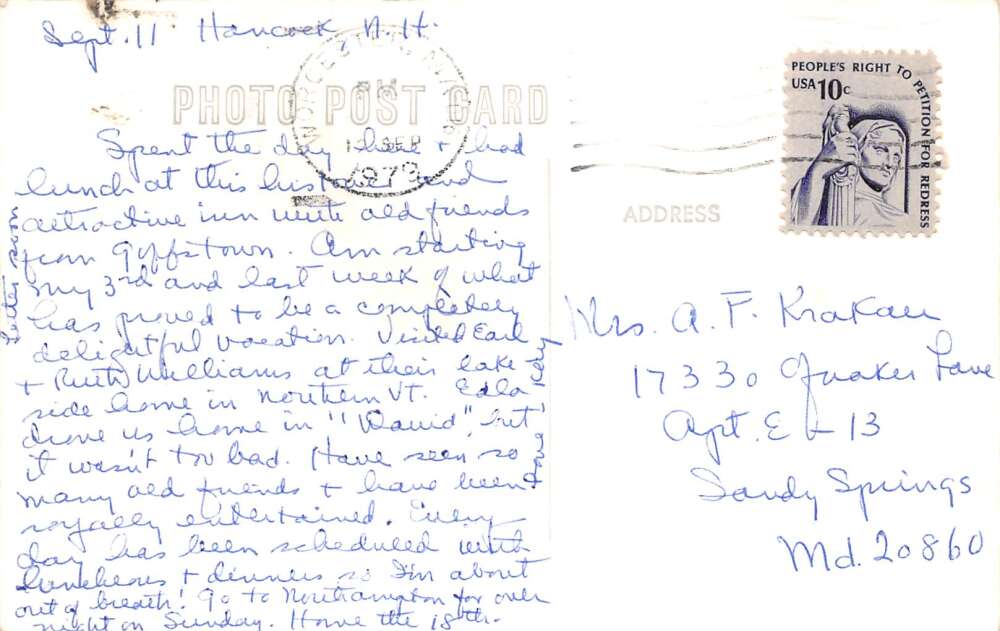 Sept. 11 Hancock, N. H.
PHOTO POST CARD
WORCESTER,
PM
12 SEP
1979
PEOPLE'S RIGHT TO PETITION FOR REDRESS
USA 10c
ADDRESS
Spent the day here + had
lunch at this historic and
attractive inn with old friends
from Goffstown. Am starting
my 3rd and last week of what
has proved to be a completely
delightful vacation. Visited Earl
+ Ruth Williams at their lake
side home in Northern VT. Edla
drove us home in "David", but
it wasn't too bad. Have seen so
many old friends + have been
royally entertained. Every
day has been scheduled with
luncheons + dinners so I'm about
out of breath! Go to Northampton for over
night on Sunday. Home the 18th.
Letter soon
Love
Mrs. A. F. Krakau
17330 Quaker Lane
Apt. E 13
Sandy Springs
Md. 20860